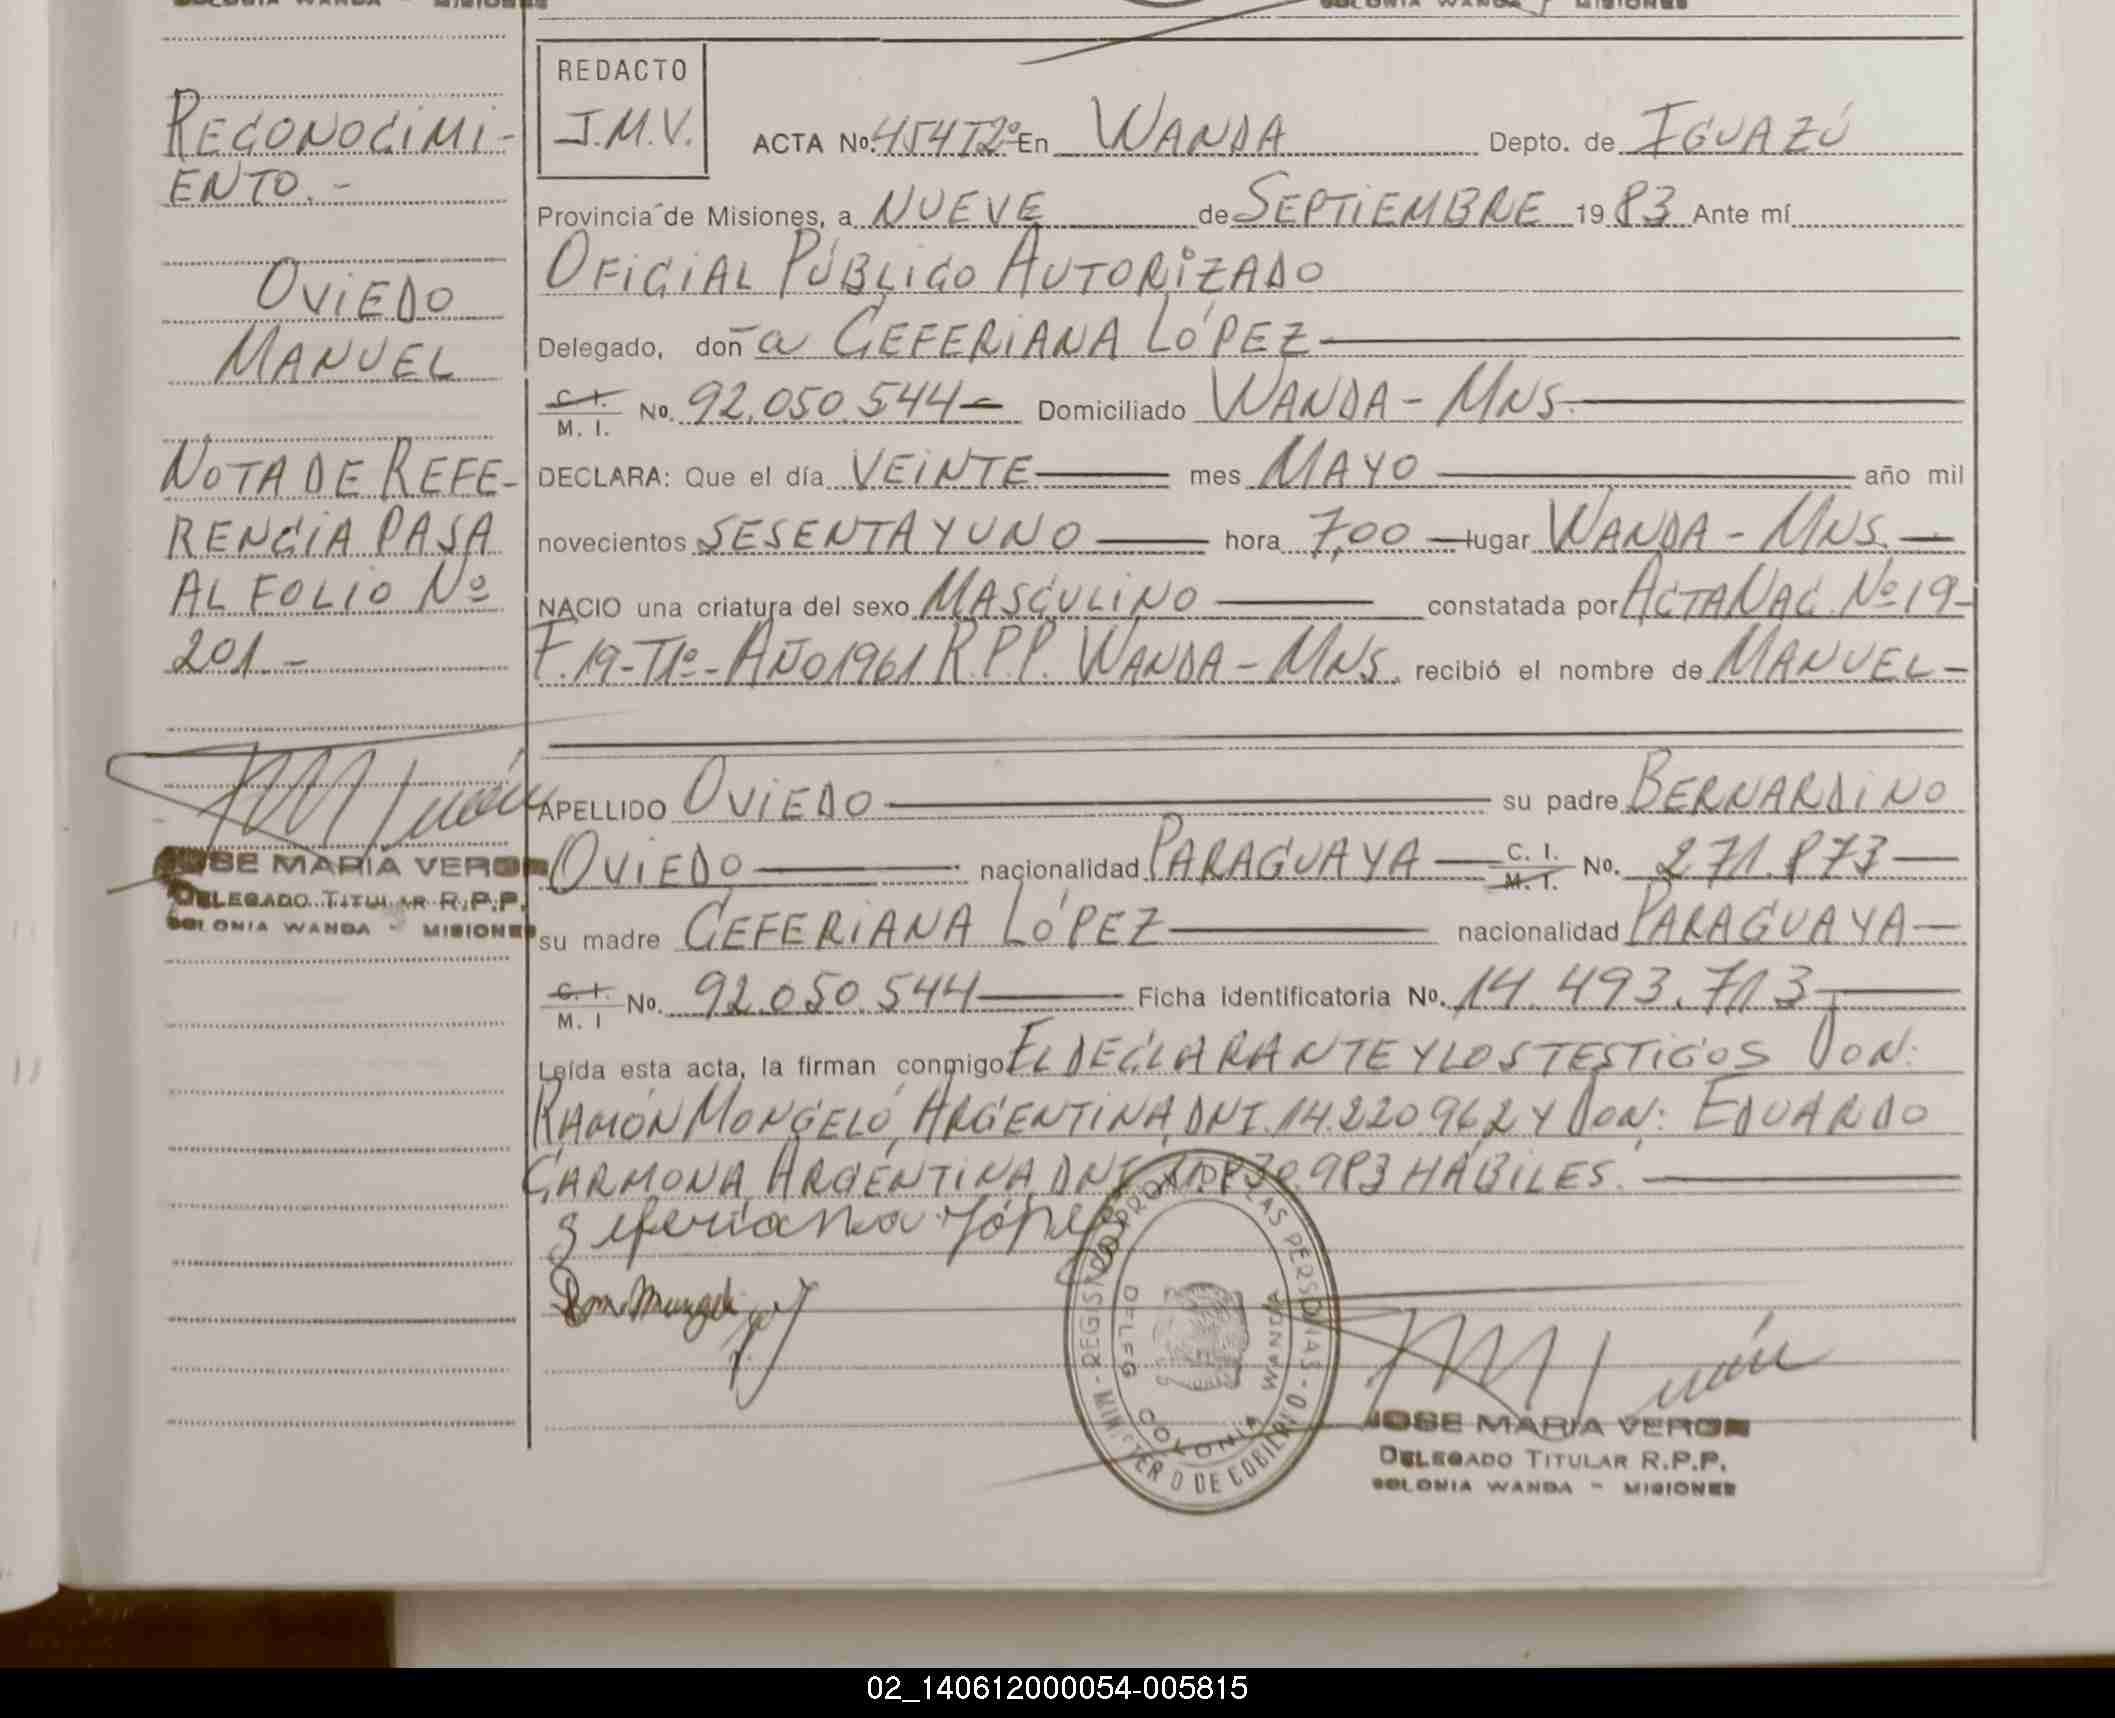 COLONIA WANDA - MISIONES
COLONIA WANDA - MISIONES
RECONOCIMI-
ENTO.-
OVIEDO
MANUEL
NOTA DE REFE-
RENCIA PASA
AL FOLIO Nº
201.-
JOSE MARIA VERON
DELEGADO TITULAR R.P.P.
COLONIA WANDA - MISIONES
REDACTO
J.M.V.
ACTA No. 454T2º En WANDA Depto. de IGUAZÚ
Provincia de Misiones, a NUEVE de SEPTIEMBRE 19 83 Ante mí
OFICIAL PÚBLICO AUTORIZADO
Delegado, doña CEFERIANA LÓPEZ
C. I.
M. I. No. 92.050.544- Domiciliado WANDA - MNS.
DECLARA: Que el día VEINTE mes MAYO año mil
novecientos SESENTA Y UNO hora 7,00 lugar WANDA - MNS.
NACIO una criatura del sexo MASCULINO constatada por ACTA NAC. Nº 19-
F.19-T1º-AÑO 1961 R.P.P. WANDA - MNS. recibió el nombre de MANUEL-
APELLIDO OVIEDO su padre BERNARDINO
OVIEDO nacionalidad PARAGUAYA C. I. M. I. No. 271.873
su madre CEFERIANA LÓPEZ nacionalidad PARAGUAYA
C. I.
M. I No. 92.050.544 Ficha identificatoria No. 14.493.713
Leída esta acta, la firman conmigo EL DECLARANTE Y LOS TESTIGOS DON:
RAMÓN MONGELÓ, ARGENTINA, DNI. 14.220.962 Y DON: EDUARDO
CARMONA, ARGENTINA, DNI 983 HÁBILES.
Ceferiana López
REGISTRO PROV. DE LAS PERSONAS - MINISTERIO DE GOBIERNO
DELEG COLONIA WANDA
JOSE MARIA VERON
DELEGADO TITULAR R.P.P.
COLONIA WANDA - MISIONES
02_140612000054-005815